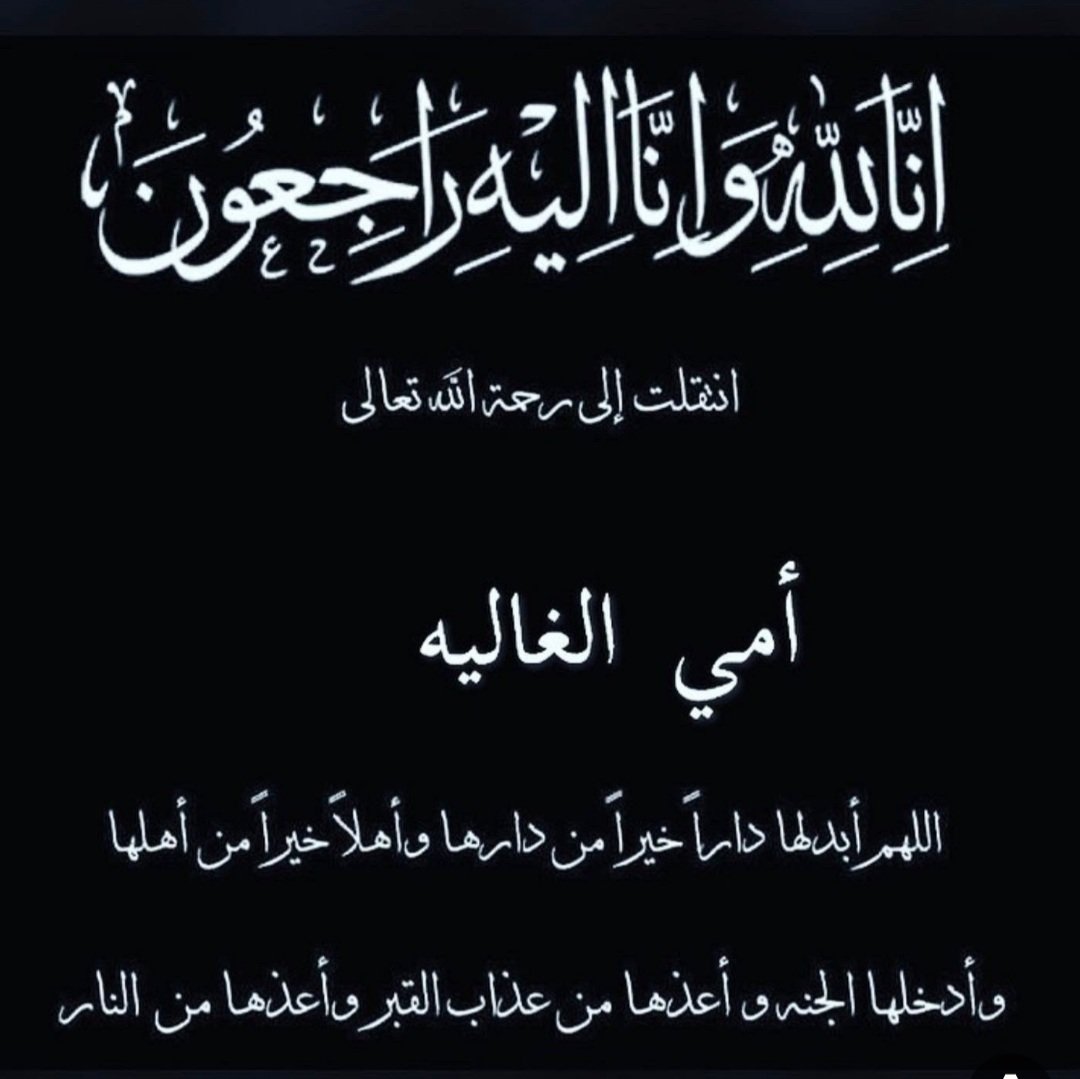 إِنَّا لِلَّهِ وَإِنَّا إِلَيْهِ رَاجِعُونَ
انتقلت إلى رحمة الله تعالى
أمي الغاليه
اللهم أبدلها داراً خيراً من دارها وأهلاً خيراً من أهلها
وأدخلها الجنه و أعذها من عذاب القبر وأعذها من النار